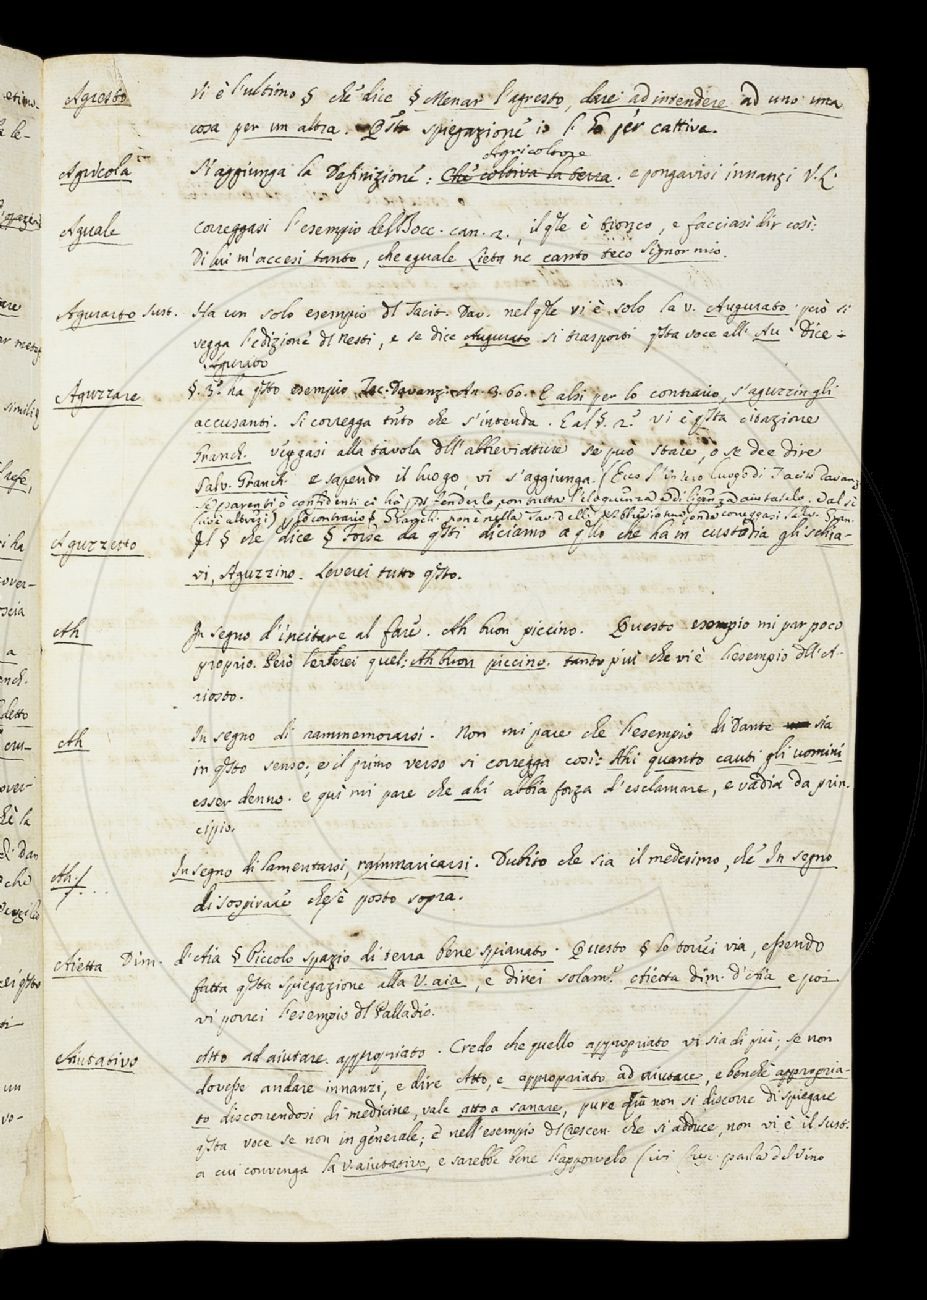 Agresto vi è l'ultimo § che dice § Menar l'agresto, dare ad intendere ad uno una
cosa per un altra. Q.sta spiegazione io l' ho per cattiva.
Agricoltore
Agricola S'aggiunga la Definizione: Che coltiva la terra. e pongavisi innanzi V. L.
Aguale correggasi l'esempio del Bocc. can. 2., il q.le è tronco, e facciasi dir così:
Di lui m'accesi tanto, che aguale Lieta ne canto teco Signor mio.
Agurato Sust. Ha un solo esempio di Tacit. Dav. nel q.le vi è solo la v. Augurato però si
vegga l'edizione di Nesti, e se dice Augurato si trasporti q.sta voce all. Au. Dice
Agurato
Aguzzare §. 3.° ha q.sto esempio Tac. Davanz. An. 3. 60. E alsi per lo contrario, s'aguzzin gli
accusanti. Si corregga tutto che s'intenda. E al §. 2.° vi è q.sta citazione
Franch. veggasi alla tavola dell'abbreviature se può stare, o se dee dire
Salv. Granch. e sapendo il luogo, vi s'aggiunga. (Ecco l'intero luogo di Tacito Davanz.
Aguzzetto Il § che dice § Forse da q.sti diciamo a q.llo che ha in custodia gli schia-
vi, Aguzzino. Leverei tutto q.sto.
Ah In segno d'incitare al fare. Ah buon piccino. Questo esempio mi par poco
proprio. Però leverei quel: Ah buon piccino. tanto più che vi è l'esempio dell'A-
riosto.
Ah In segno di rammemorarsi. Non mi pare che l'esempio di Dante sia
in q.sto senso, e il primo verso si corregga così: Ahi quanto cauti gli uomini
esser denno. e quì mi pare che ahi abbia forza d'esclamare, e vadia da prin-
cipio.
Ah. In segno di lamentarsi, rammaricarsi. Dubito che sia il medesimo, che In segno
di sospirare ch'è posto sopra.
Aietta Dim. d'Aia § Piccolo spazio di terra bene spianato. Questo § lo torrei via, essendo
fatta q.sta spiegazione alla V. aia, e direi solam.te Aietta dim. d'Aia e poi
vi porrei l'esempio di Palladio.
Aiutativo Atto ad aiutare appropriato. Credo che quello appropriato vi sia di più; se non
dovesse andare innanzi, e dire Atto, e appropriato ad aiutare, e benchè appropria-
to discorrendosi di medicine, vale atto a sanare, pure quì non si discorre di spiegare
q.sta voce se non in generale; E nell'esempio di Crescen. che si adduce, non vi è il sust.
a cui convenga la v. aiutativo, e sarebbe bene l'apporvelo (ivi parla del vino